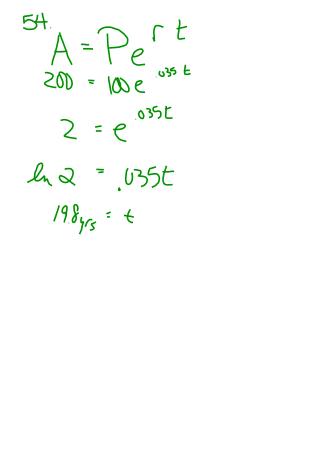 54.
A = Pe^rt
200 = 100e^.035t
2 = e^.035t
ln 2 = .035t
198yrs = t